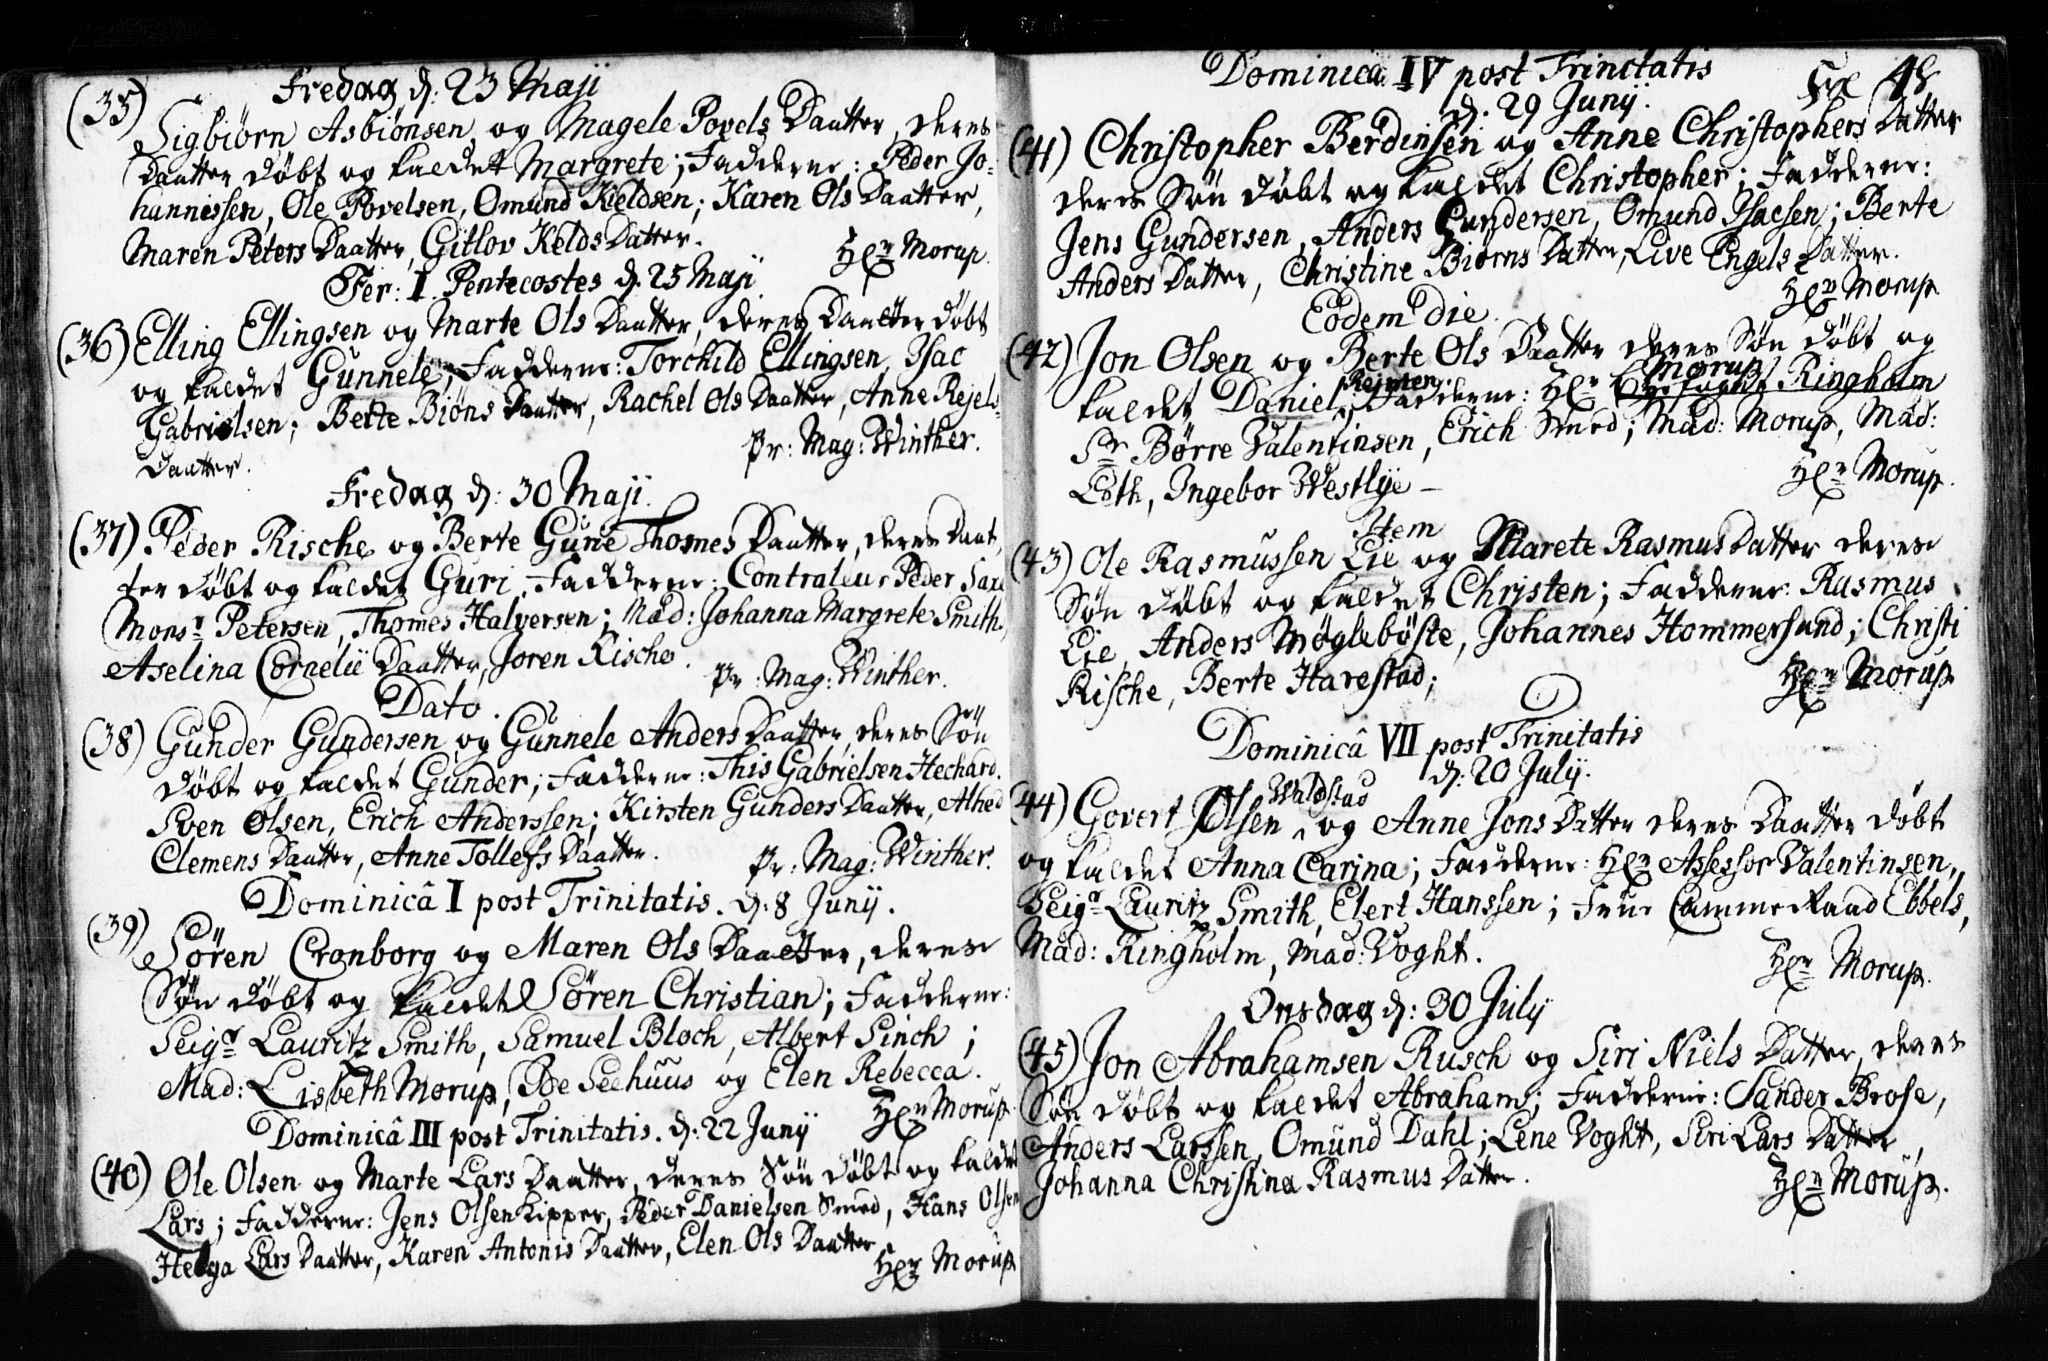 Fredag d: 23 Maji
(35) Sigbiørn Asbiønsen og Magele Povels Daatter, deres
Daatter døbt og kaldet Margrete; Fadderne: Peder Jo-
hannessen, Ole Povelsen, Omund Kieldsen; Karen Ols Daatter,
Maren Peters Daatter, Gitlov Kelds Datter.
Hr. Morup.
Fer: I Pentecostes d. 25 Maji
(36) Elling Ellingsen og Marte Ols Daatter, deres Daatter døbt
og kaldet Gunnele; Fadderne: Torchild Ellingsen, Isac
Gabrielsen; Berte Biøns Daatter, Rachel Ols Daatter, Anne Rejels-
Daatter.
Pr: Mag: Winther.
Fredag d: 30 Maji.
(37) Peder Rische og Berte Gurie Thomes Daatter, deres Daat-
ter døbt og kaldet Guri, Fadderne: Contraleur Peder Saxe
Monsr. Petersen, Thomes Halversen; Mad: Johanna Margrete Smith,
Aselina Cornelii Daatter, Joren Rische.
Pr: Mag: Winther.
Dato.
(38) Gunder Gundersen og Gunnele Anders Daatter, deres Søn
døbt og kaldet Gunder; Fadderne: This Gabrielsen Hechard.
Sven Olsen, Erich Anderssen; Kirsten Gunders Daatter, Alhed
Clemens Daatter, Anne Tollefs Daatter.
Pr: Mag: Winther.
Dominicâ I post Trinitatis. d: 8 Junij.
(39) Søren Cronborg og Maren Ols Daatter, deres
Søn døbt og kaldet Søren Christian; Fadderne:
Seigr. Lauritz Smith, Samuel Bloch, Albert Finch;
Mad: Lisbeth Morup, Boe Seehuus og Elen Rebecca.
Hr. Morup.
Dominicâ III post Trinitatis. d: 22 Junij
(40) Ole Olsen og Marte Lars Daatter, deres Søn døbt og kaldet
Lars; Fadderne: Jens Olsen Kipper, Peder Danielsen Smed, Hans Olsen
Helga Lars Daatter, Karen Antonis Daatter, Elen Ols Daatter
Hr. Morup.
Dominicâ IV post Trinitatis
48
d: 29 Junij.
(41) Christopher Berdinsen og Anne Christophers Datter
deres Søn døbt og kaldet Christopher; Fadderne:
Jens Gundersen, Anders Gundersen, Omund Isacsen; Berte
Anders Datter, Christine Biørns Datter, Live Engels Datter.
Hr. Morup.
Eodem die.
(42) Jon Olsen og Berte Ols Daatter deres Søn døbt og
kaldet Daniel Reimert. Fadderne: Hr. Morup Ringholm
Sr. Børre Valentinsen, Erich Smed; Mad: Morup, Mad:
Loth, Ingebor Westlye –
Hr. Morup.
Item
(43) Ole Rasmussen Lie og Marete Rasmus Datter deres
Søn døbt og kaldet Christen; Fadderne: Rasmus
Lie, Anders Møglebøste, Johannes Hommersand; Christi
Rische, Berte Harestad;
Hr. Morup
Dominicâ VII post Trinitatis
d: 20 July.
(44) Govert Olsen Waldstad og Anne Jons Datter deres Daatter døbt
og kaldet Anna Carina; Fadderne: Hr. Assessor Valentinsen,
Seigr. Lauritz Smith, Elert Hanssen; Frue Cammerraad Ebbels,
Mad: Ringholm, Mad: Voght.
Hr. Morup.
Onsdag d: 30 July
(45) Jon Abrahamsen Rusch og Siri Niels Datter, deres
Søn døbt og kaldet Abraham; Fadderne: Sander Brose,
Anders Larssen, Omund Dahl; Lene Voght, Siri Lars Datter,
Johanna Christina Rasmus Datter.
Hr. Morup.